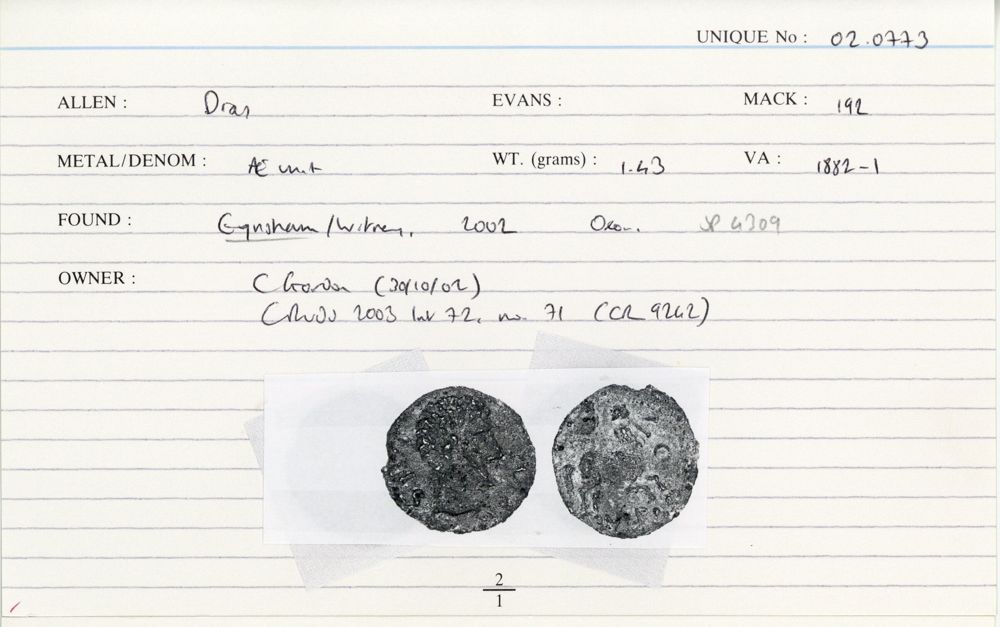 UNIQUE No : 02.0773
ALLEN : Dras EVANS : MACK : 192
METAL/DENOM : Æ unit WT. (grams) : 1.43 VA : 1882-1
FOUND : Eynsham/Witney, 2002 Oxon. SP 4309
OWNER : C (30/10/02)
2003 list 72, no. 71 (CR 9242)
2
1